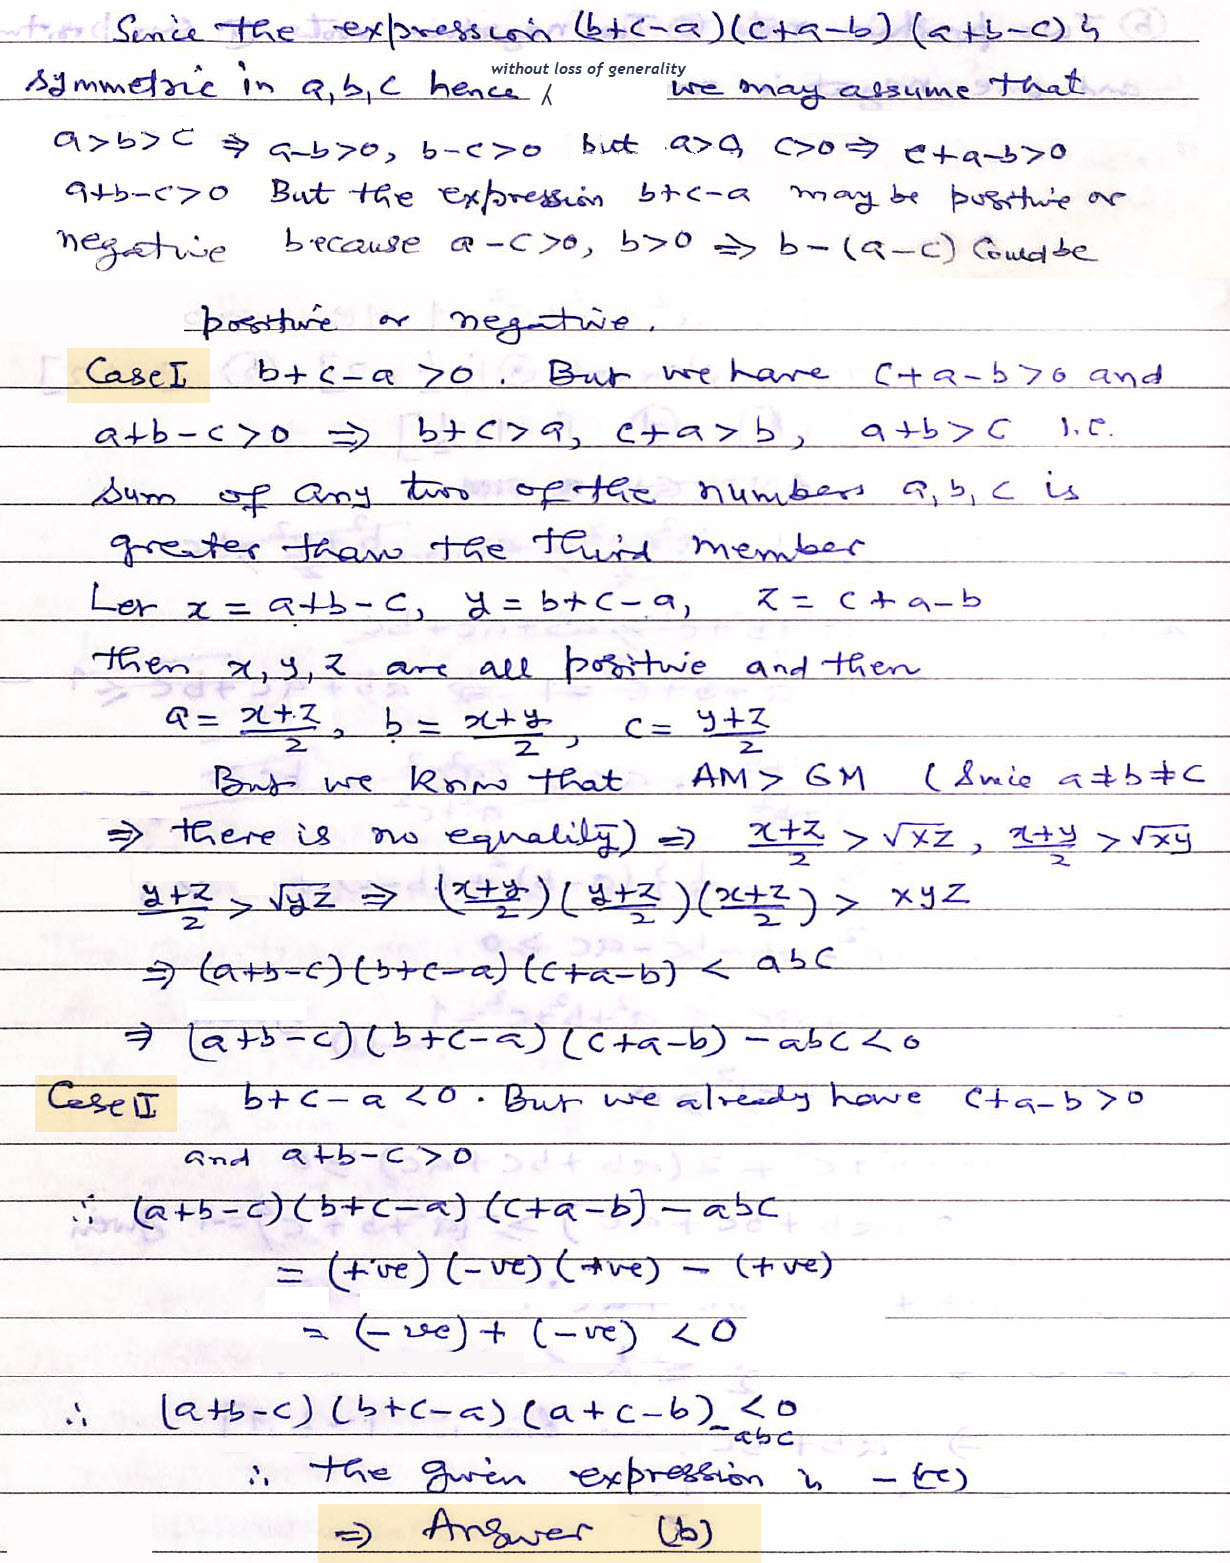 Since the expression (b+c-a)(c+a-b)(a+b-c) is
without loss of generality
symmetric in a, b, c hence ⁁ we may assume that
a>b>c ⇒ a-b>0, b-c>0 but a>0, c>0 ⇒ c+a-b>0
a+b-c>0 But the expression b+c-a may be positive or
negative because a-c>0, b>0 ⇒ b-(a-c) could be
positive or negative.
Case I b+c-a>0. But we have c+a-b>0 and
a+b-c>0 ⇒ b+c>a, c+a>b, a+b>c i.e.
sum of any two of the numbers a, b, c is
greater than the third member
Let x = a+b-c, y = b+c-a, z = c+a-b
then x, y, z are all positive and then
a = (x+z)/2, b = (x+y)/2, c = (y+z)/2
But we know that AM > GM (Since a≠b≠c
⇒ there is no equality) ⇒ (x+z)/2 > √xz, (x+y)/2 > √xy
(y+z)/2 > √yz ⇒ ((x+y)/2)((y+z)/2)((x+z)/2) > xyz
⇒ (a+b-c)(b+c-a)(c+a-b) < abc
⇒ (a+b-c)(b+c-a)(c+a-b) - abc < 0
Case II b+c-a<0. But we already have c+a-b>0
and a+b-c>0
∴ (a+b-c)(b+c-a)(c+a-b) - abc
= (+ve)(-ve)(+ve) - (+ve)
= (-ve) + (-ve) < 0
∴ (a+b-c)(b+c-a)(a+c-b) - abc < 0
∴ the given expression is -(ve)
⇒ Answer (b)